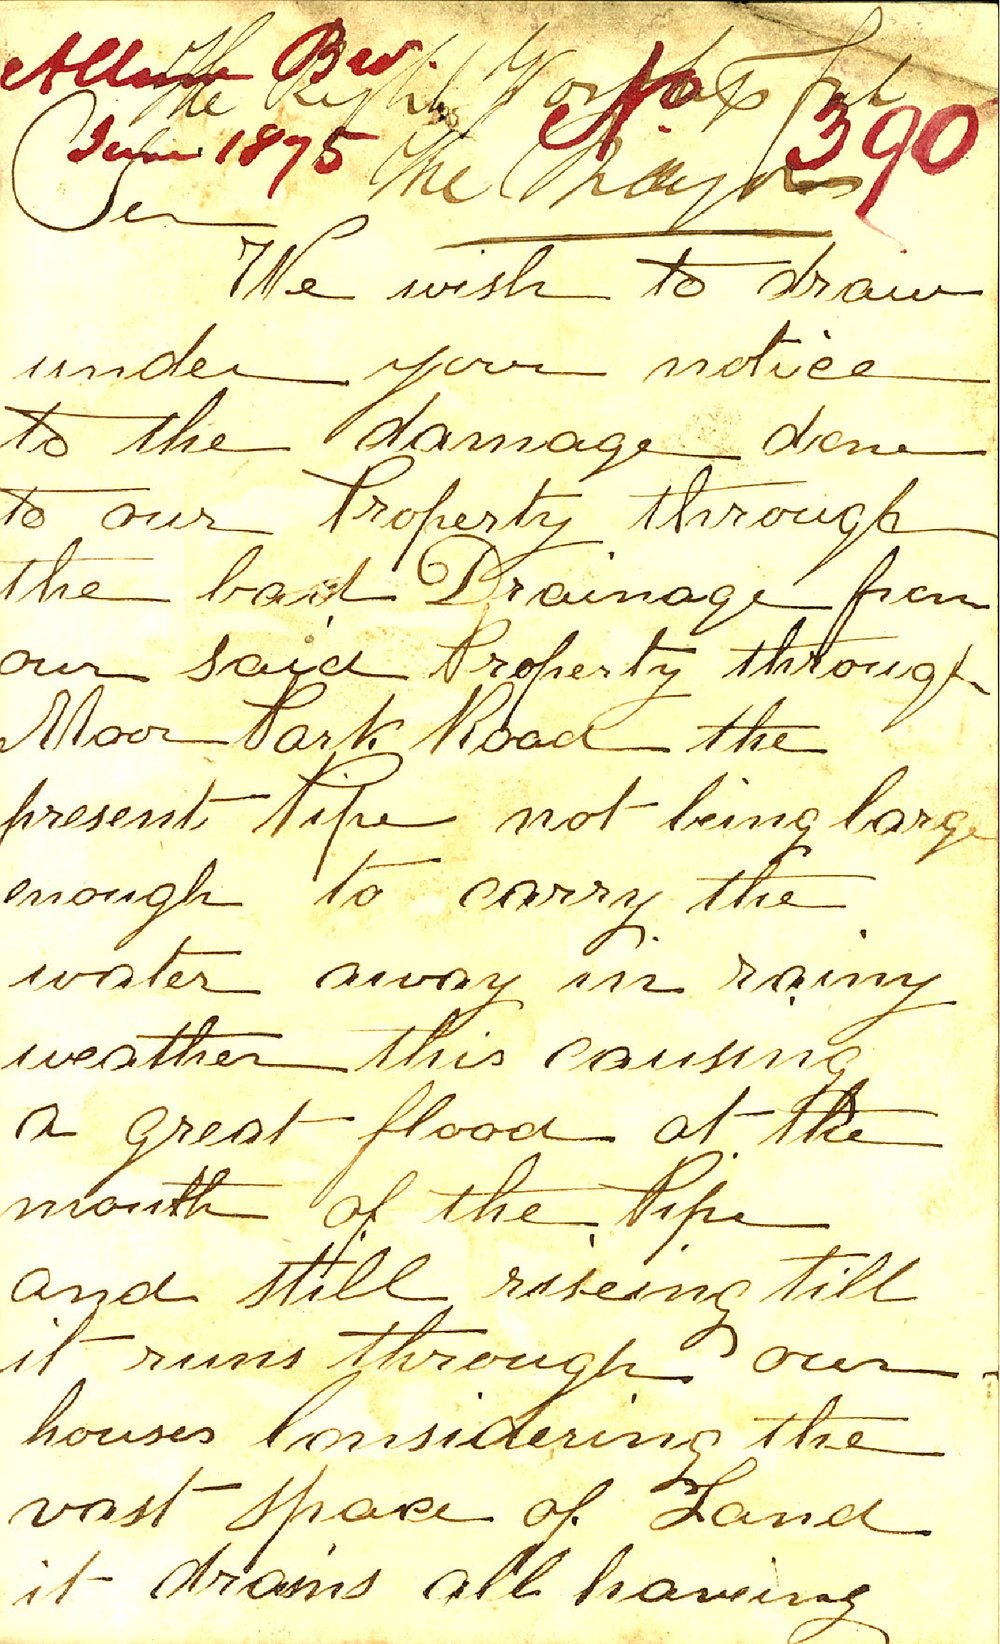 Allum Bro No. 390
The Right Worshipful
June 1875 The Mayor
Sir
We wish to draw
under your notice
to the damage done
to our Property through
the bad Drainage from
our said Property through
Moor Park Road the
present Pipe not being large
enough to carry the
water away in rainy
weather this causing
a great flood at the
mouth of the Pipe
and still riseing till
it runs through our
houses Considering the
vast space of Land
it drains all haveing